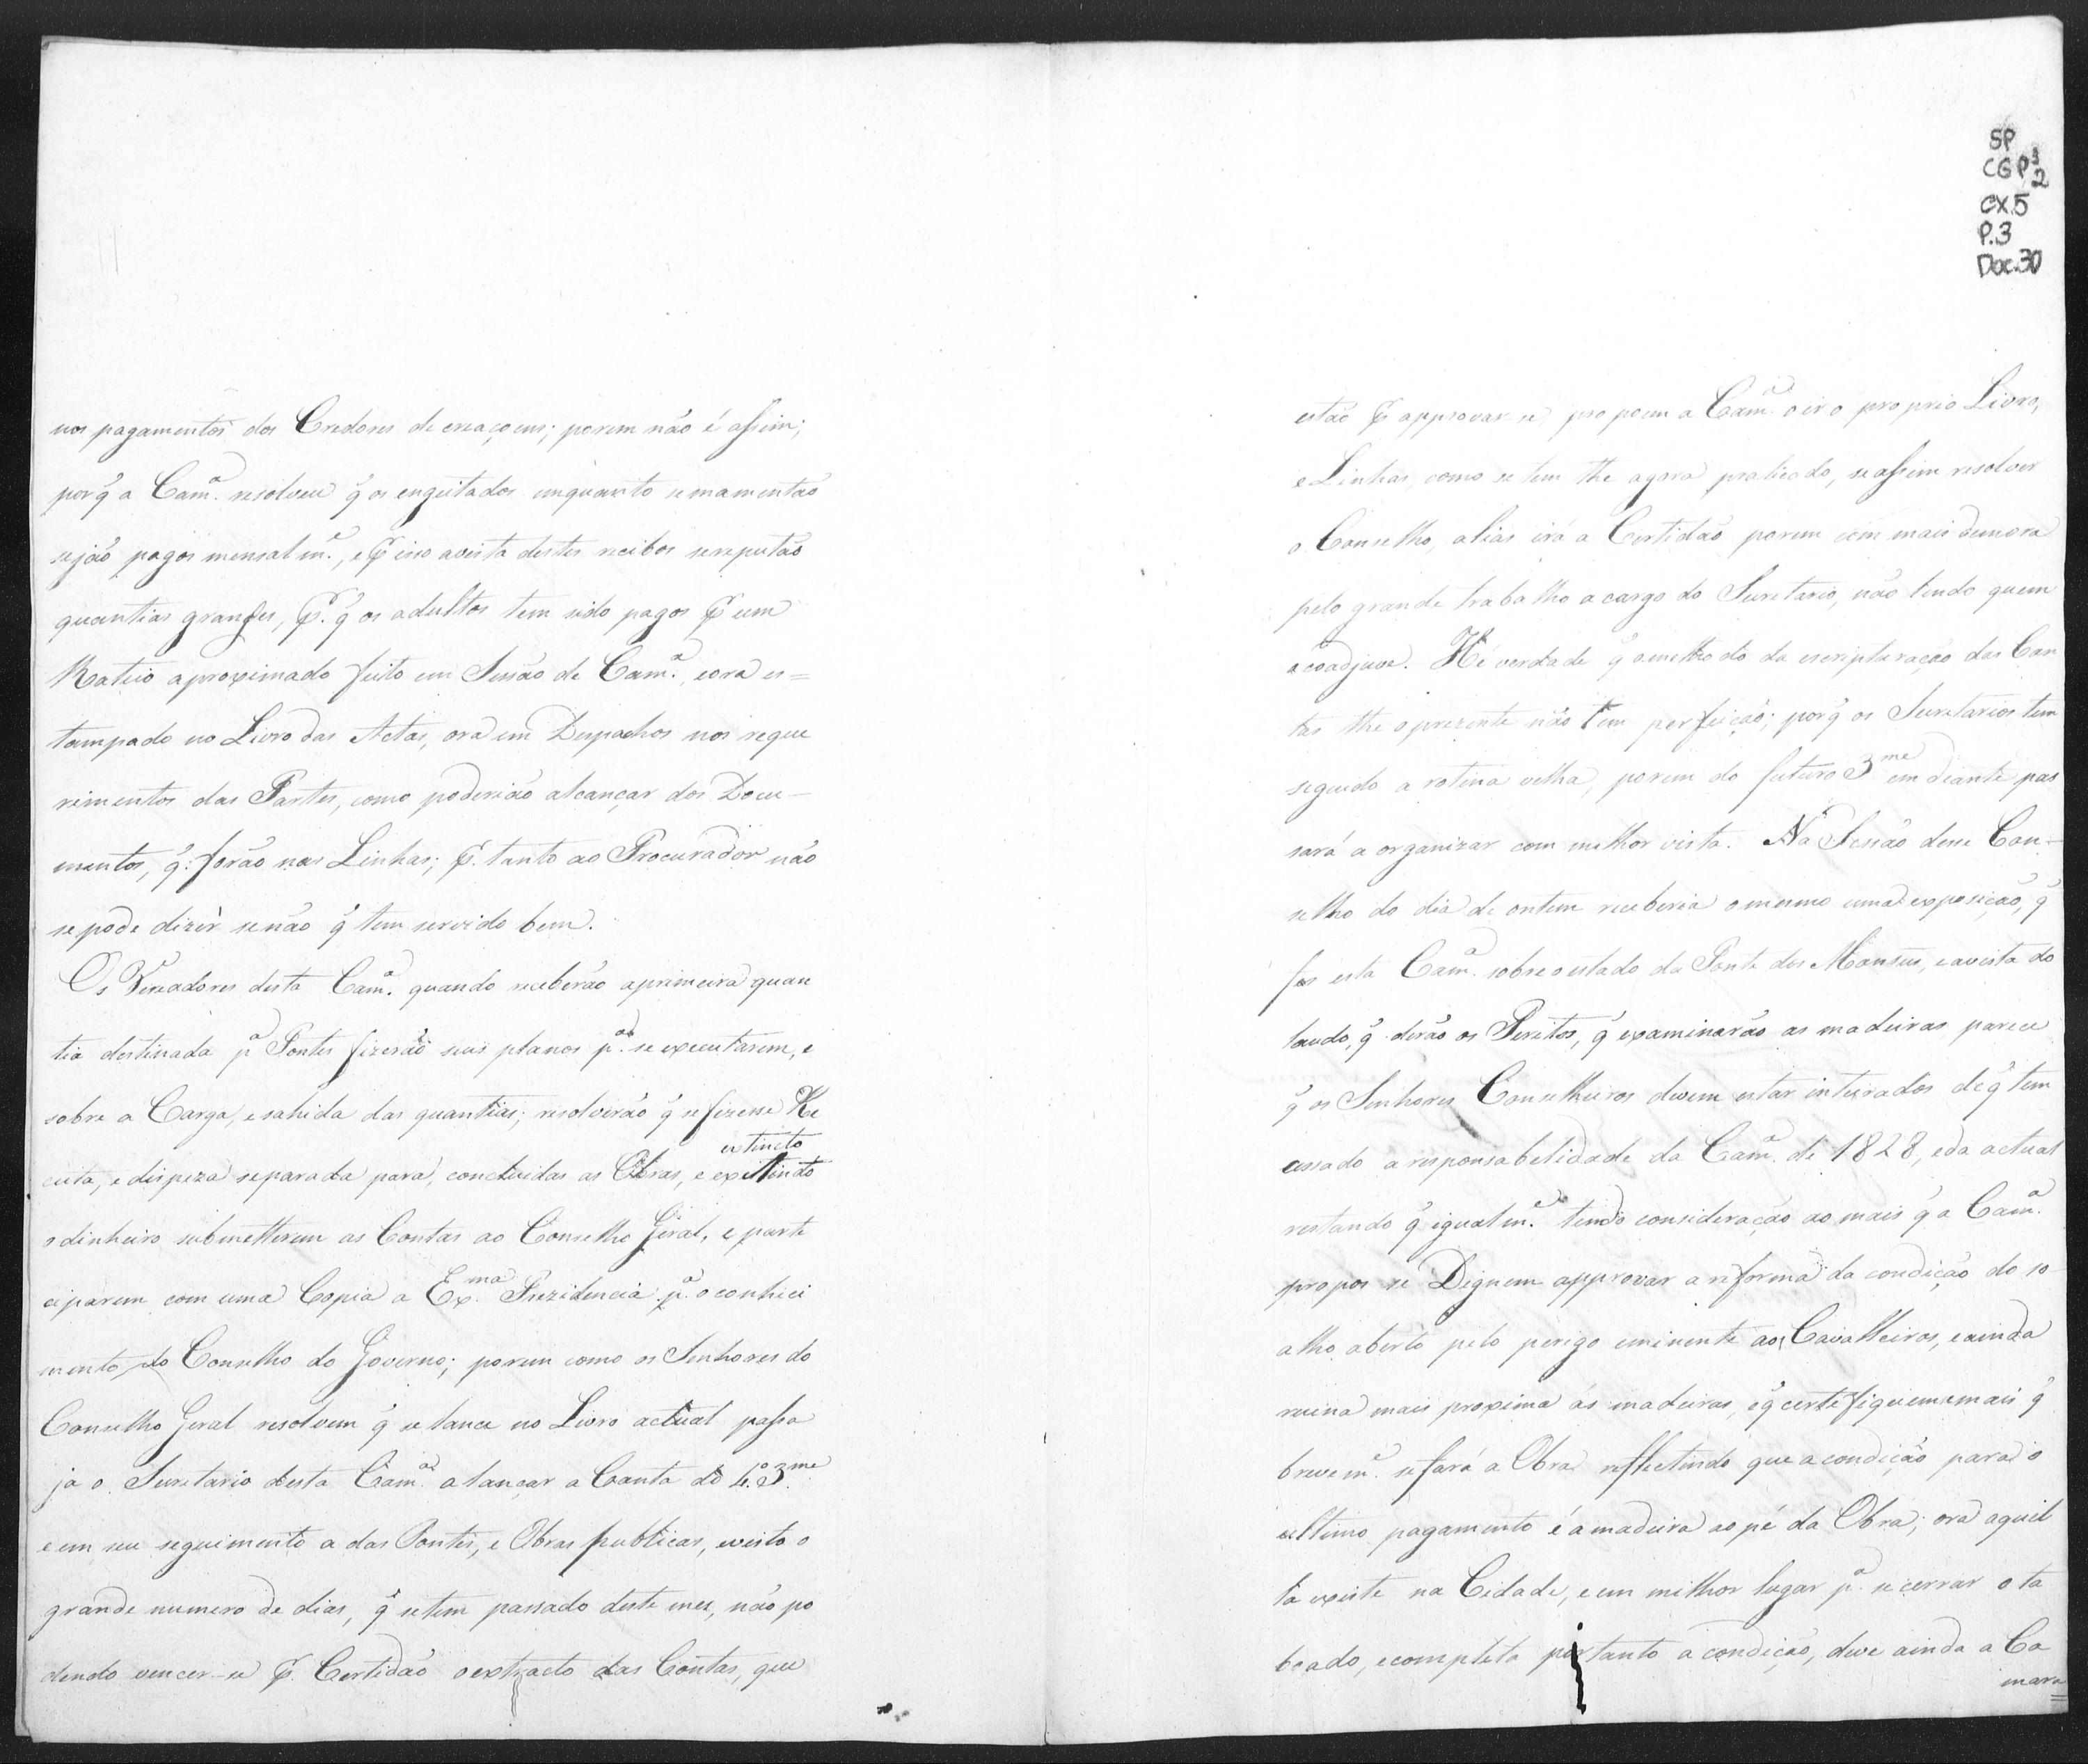 nos pagamentos dos Credores de creaçoens; porem não é assim;
porq̃ a Cam.ª resolveu q̃ os engeitados emquanto se mamentão
sejão pagos mensalm.e, e p̃ isso avista destes recibos se reputão
quantias grandes, p̃. q̃ os adultos tem sido pagos p̃ um
Rateio aproximado feito em Sessão de Cam.ª, eora es=
tampado no Livro das Actas, ora em Despachos nos reque
rimentos das Partes, como poderião alcançar dos Docu-
mentos, q̃: forão nas Linhas; p̃. tanto ao Procurador não
se pode dizer senão q̃ tem servido bem.
Os Vereadores desta Cam.ª quando receberão aprimeira quan
tia destinada p.ª Pontes fizerão seus planos p.ª se executarem, e
sobre a Carga, e sahida das quantias; resolverão q̃ se fizesse Re
extincto
ceita, e dispeza separada para, concluidas as Obras, e existindo
o dinheiro submetterem as Contas ao Conselho Geral, e parte
ciparem com uma Copia a Ex.ma Prezidencia p.ª o conhici
mento do Conselho do Governo; porem como os Senhores do
Conselho Geral resolvem q̃ se lance no Livro actual passa
ja o Secretario desta Cam.ª a lançar a Conta do 4.º 3.me
e em seu seguimento a das Pontes, e Obras publicas, evisto o
grande numero de dias, q̃ setem passado deste mez, não po
dendo vencer-se p̃. Certidão oextracto das Contas, que
SP
CGP1
2
CX.5
P.3
Doc.30
estão p̃ approvar-se, propoem a Cam.ª o ir o proprio Livro,
e Linhas, como se tem the agora praticado, se assim resolver
o Conselho, alias irá a Certidão porem com mais demora
pelo grande trabalho a cargo do Secretario, não tendo quem
o coadjuve. Hé verdade q̃ o methodo da escripturação das Con
tas the o prezente não tem perfeição; porq̃ os Secretarios tem
seguido a rotina velha, porem do futuro 3me em diante pas
sará a organizar com melhor vista. Na Sessão desse Con-
selho do dia de ontem receberia omesmo uma exposição, q̃
fes esta Cam.ª sobre o estado da Ponte dos Mansus, e avista do
laudo, q̃ derão os Peritos, q̃ examinarão as madeiras parece
q̃ os Senhores Conselheiros devem estar inteirados de q̃ tem
cessado a responsabelidade da Cam.ª de 1828, eda actual
restando q̃ igualm.e tendo consideração ao mais q̃ a Cam.ª
propos se Dignem approvar a reforma da condição do so
alho aberto pelo perigo eminente aos Cavalleiros, eainda
ruina mais proxima ás madeiras, e q̃ certefiquemsemais q̃
brevem.e se fará a Obra reflectindo que acondição para o
ultimo pagamento é amadeira ao pé da Obra; ora aquel
la existe na Cidade, e em milhor lugar p.ª se cerrar o ta
boado, ecompleta portanto a condição, deve ainda a Ca
mara